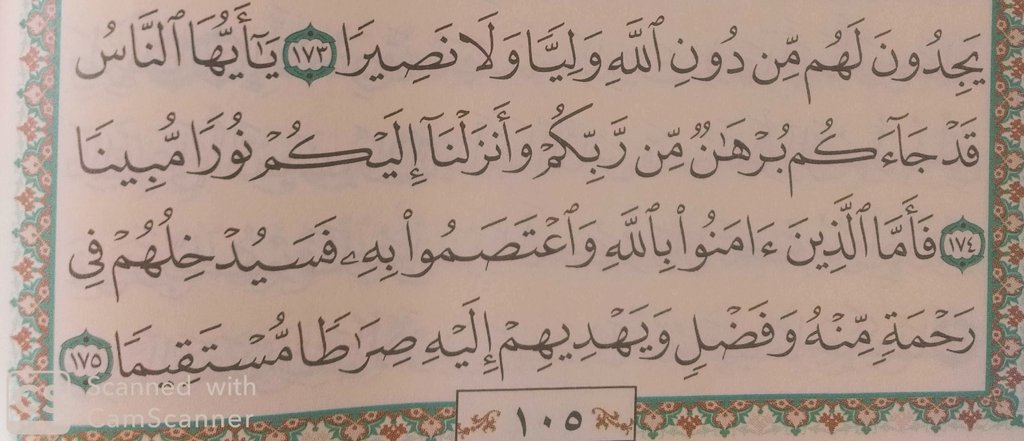 يَجِدُونَ لَهُم مِّن دُونِ ٱللَّهِ وَلِيًّا وَلَا نَصِيرًا ١٧٣ يَـٰٓأَيُّهَا ٱلنَّاسُ
قَدْ جَآءَكُم بُرْهَـٰنٌ مِّن رَّبِّكُمْ وَأَنزَلْنَآ إِلَيْكُمْ نُورًا مُّبِينًا
١٧٤ فَأَمَّا ٱلَّذِينَ ءَامَنُوا۟ بِٱللَّهِ وَٱعْتَصَمُوا۟ بِهِۦ فَسَيُدْخِلُهُمْ فِى
رَحْمَةٍ مِّنْهُ وَفَضْلٍ وَيَهْدِيهِمْ إِلَيْهِ صِرَٰطًا مُّسْتَقِيمًا ١٧٥
Scanned with
CamScanner
١٠٥